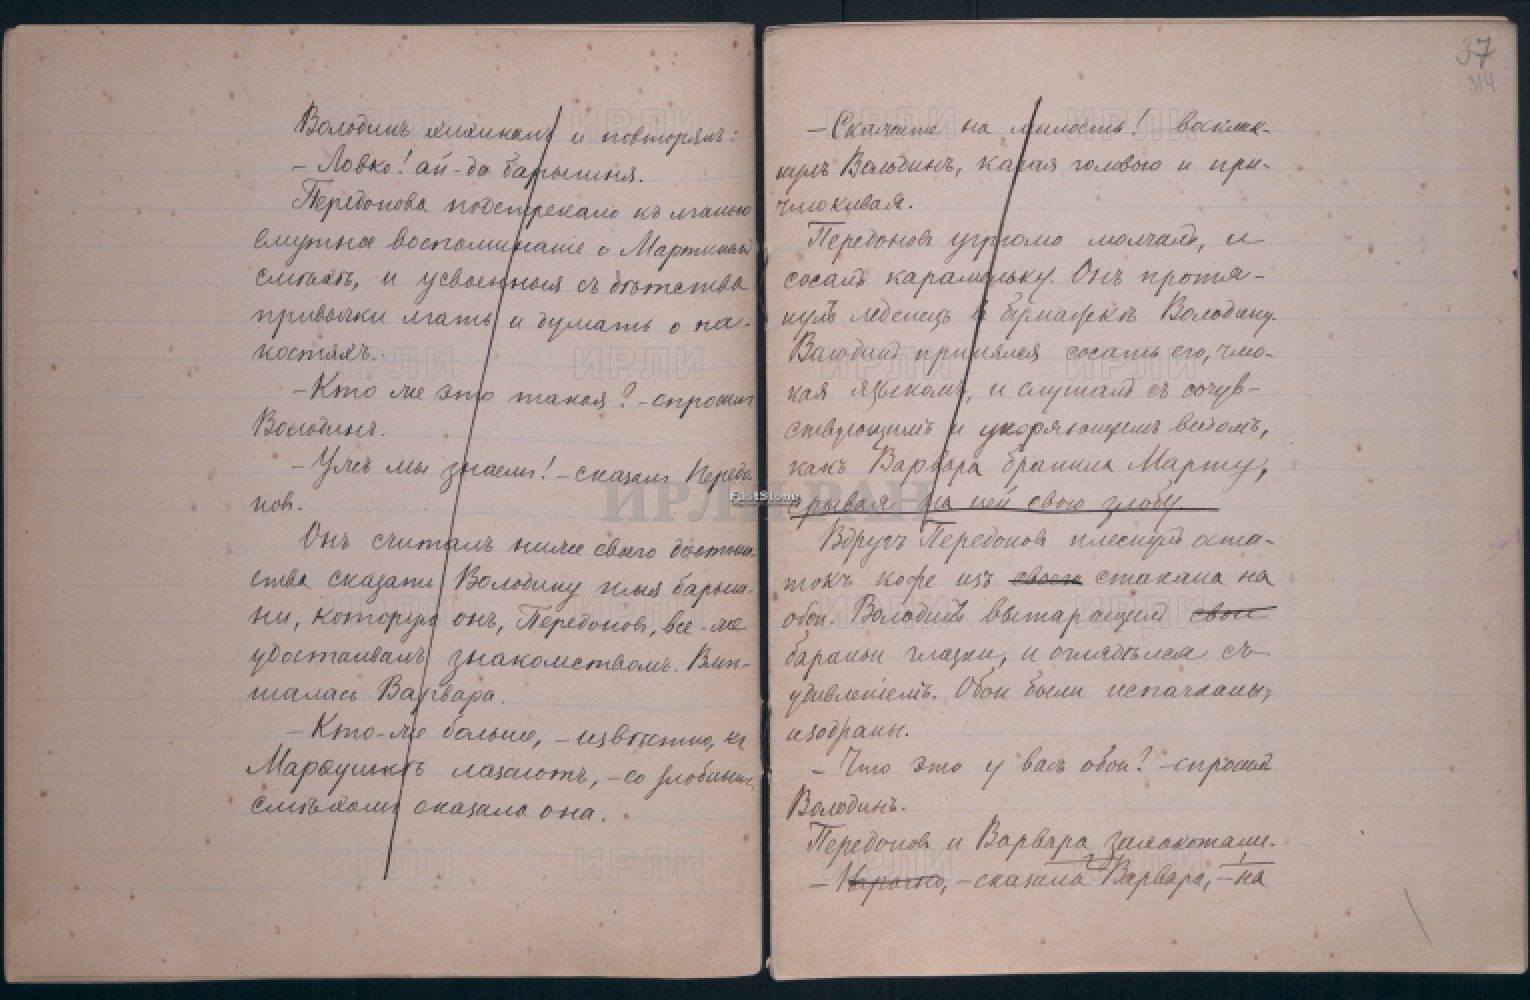 Володинъ хихикалъ и повторялъ:
– Ловко! ай-да барышня.
Передонова подстрекало къ лганью
смутное воспоминаніе о Мартиномъ
смѣхѣ, и усвоенныя съ дѣтства
привычки лгать и думать о па-
костяхъ.
– Кто же это такая? – спросилъ
Володинъ.
– Ужъ мы знаемъ! – сказалъ Передо-
новъ.
Онъ считалъ ниже своего достоин-
ства сказать Володину имя барыш-
ни, которую онъ, Передоновъ, все-же
удостаивалъ знакомствомъ. Вмѣ-
шалась Варвара.
– Кто-же больше, – извѣстно, къ
Марѳушкѣ лазаютъ, – со злобнымъ
смѣхомъ сказала она.
37
314
– Скажите на милость! воклик-
нулъ Володинъ, качая головою и при-
чмокивая.
Передоновъ угрюмо молчалъ, и
сосалъ карамельку. Онъ протя-
нулъ леденецъ въ бумажкѣ Володину.
Володинъ принялся сосать его, чмо-
кая языкомъ, и слушалъ съ сочув-
ствующимъ и укоряющимъ видомъ,
какъ Варвара бранила Марту,
срывая на ней свою злобу.
Вдругъ Передоновъ плеснулъ оста-
токъ кофе изъ своего стакана на
обои. Володинъ вытаращилъ свои
бараньи глазки, и оглядѣлся съ
удивленіемъ. Обои были испачканы,
изодраны.
– Что это у васъ обои? – спросилъ
Володинъ.
Передоновъ и Варвара захохотали.
– сказала Варвара, – на
ИРЛИ РАН
FastStone